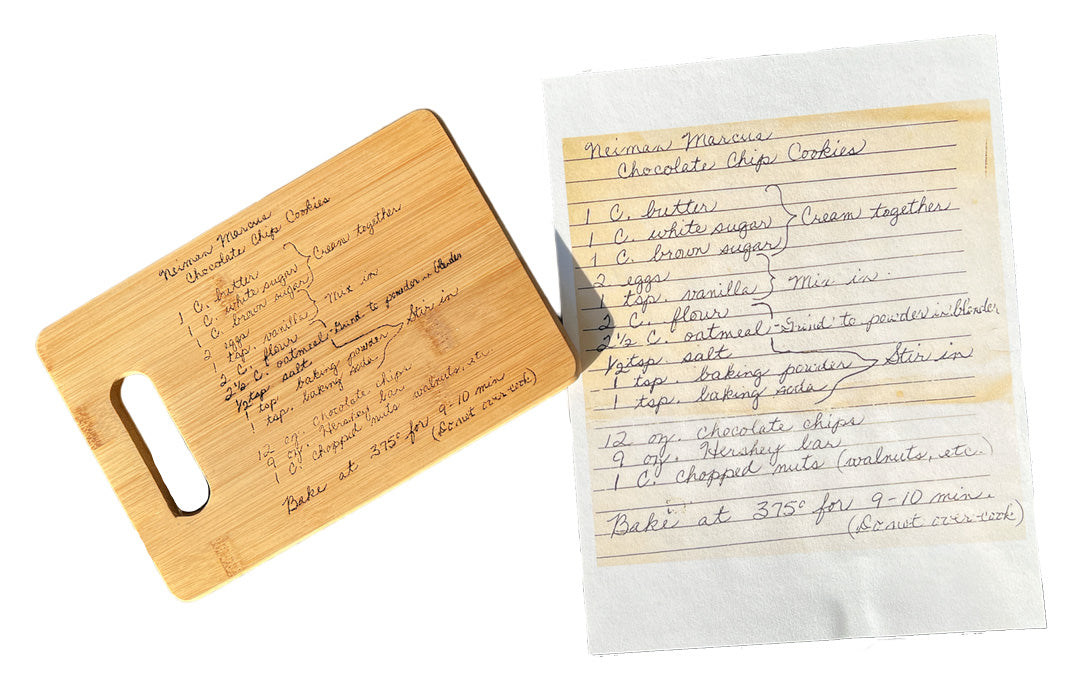 Neiman Marcus
Chocolate Chip Cookies
1 C. butter
1 C. white sugar
1 C. brown sugar
Cream together
2 eggs
1 tsp. vanilla
Mix in
2 C. flour
2 1/2 C. oatmeal - Grind to powder in blender
1/2 tsp salt
1 tsp baking powder
1 tsp. baking soda
Stir in
12 oz. chocolate chips
9 oz. Hershey bar
1 C. chopped nuts walnuts, etc
Bake at 375° for 9-10 min
(Do not over-cook)
Neiman Marcus
Chocolate Chip Cookies
1 C. butter
1 C. white sugar
1 C. brown sugar
Cream together
2 eggs
1 tsp. vanilla
Mix in.
2 C. flour
2 1/2 C. oatmeal - Grind to powder in blender
1/2 tsp. salt
1 tsp. baking powder
1 tsp. baking soda
Stir in
12 oz. chocolate chips
9 oz. Hershey bar
1 C. chopped nuts (walnuts, etc.)
Bake at 375° for 9-10 min.
(Do not over-cook)